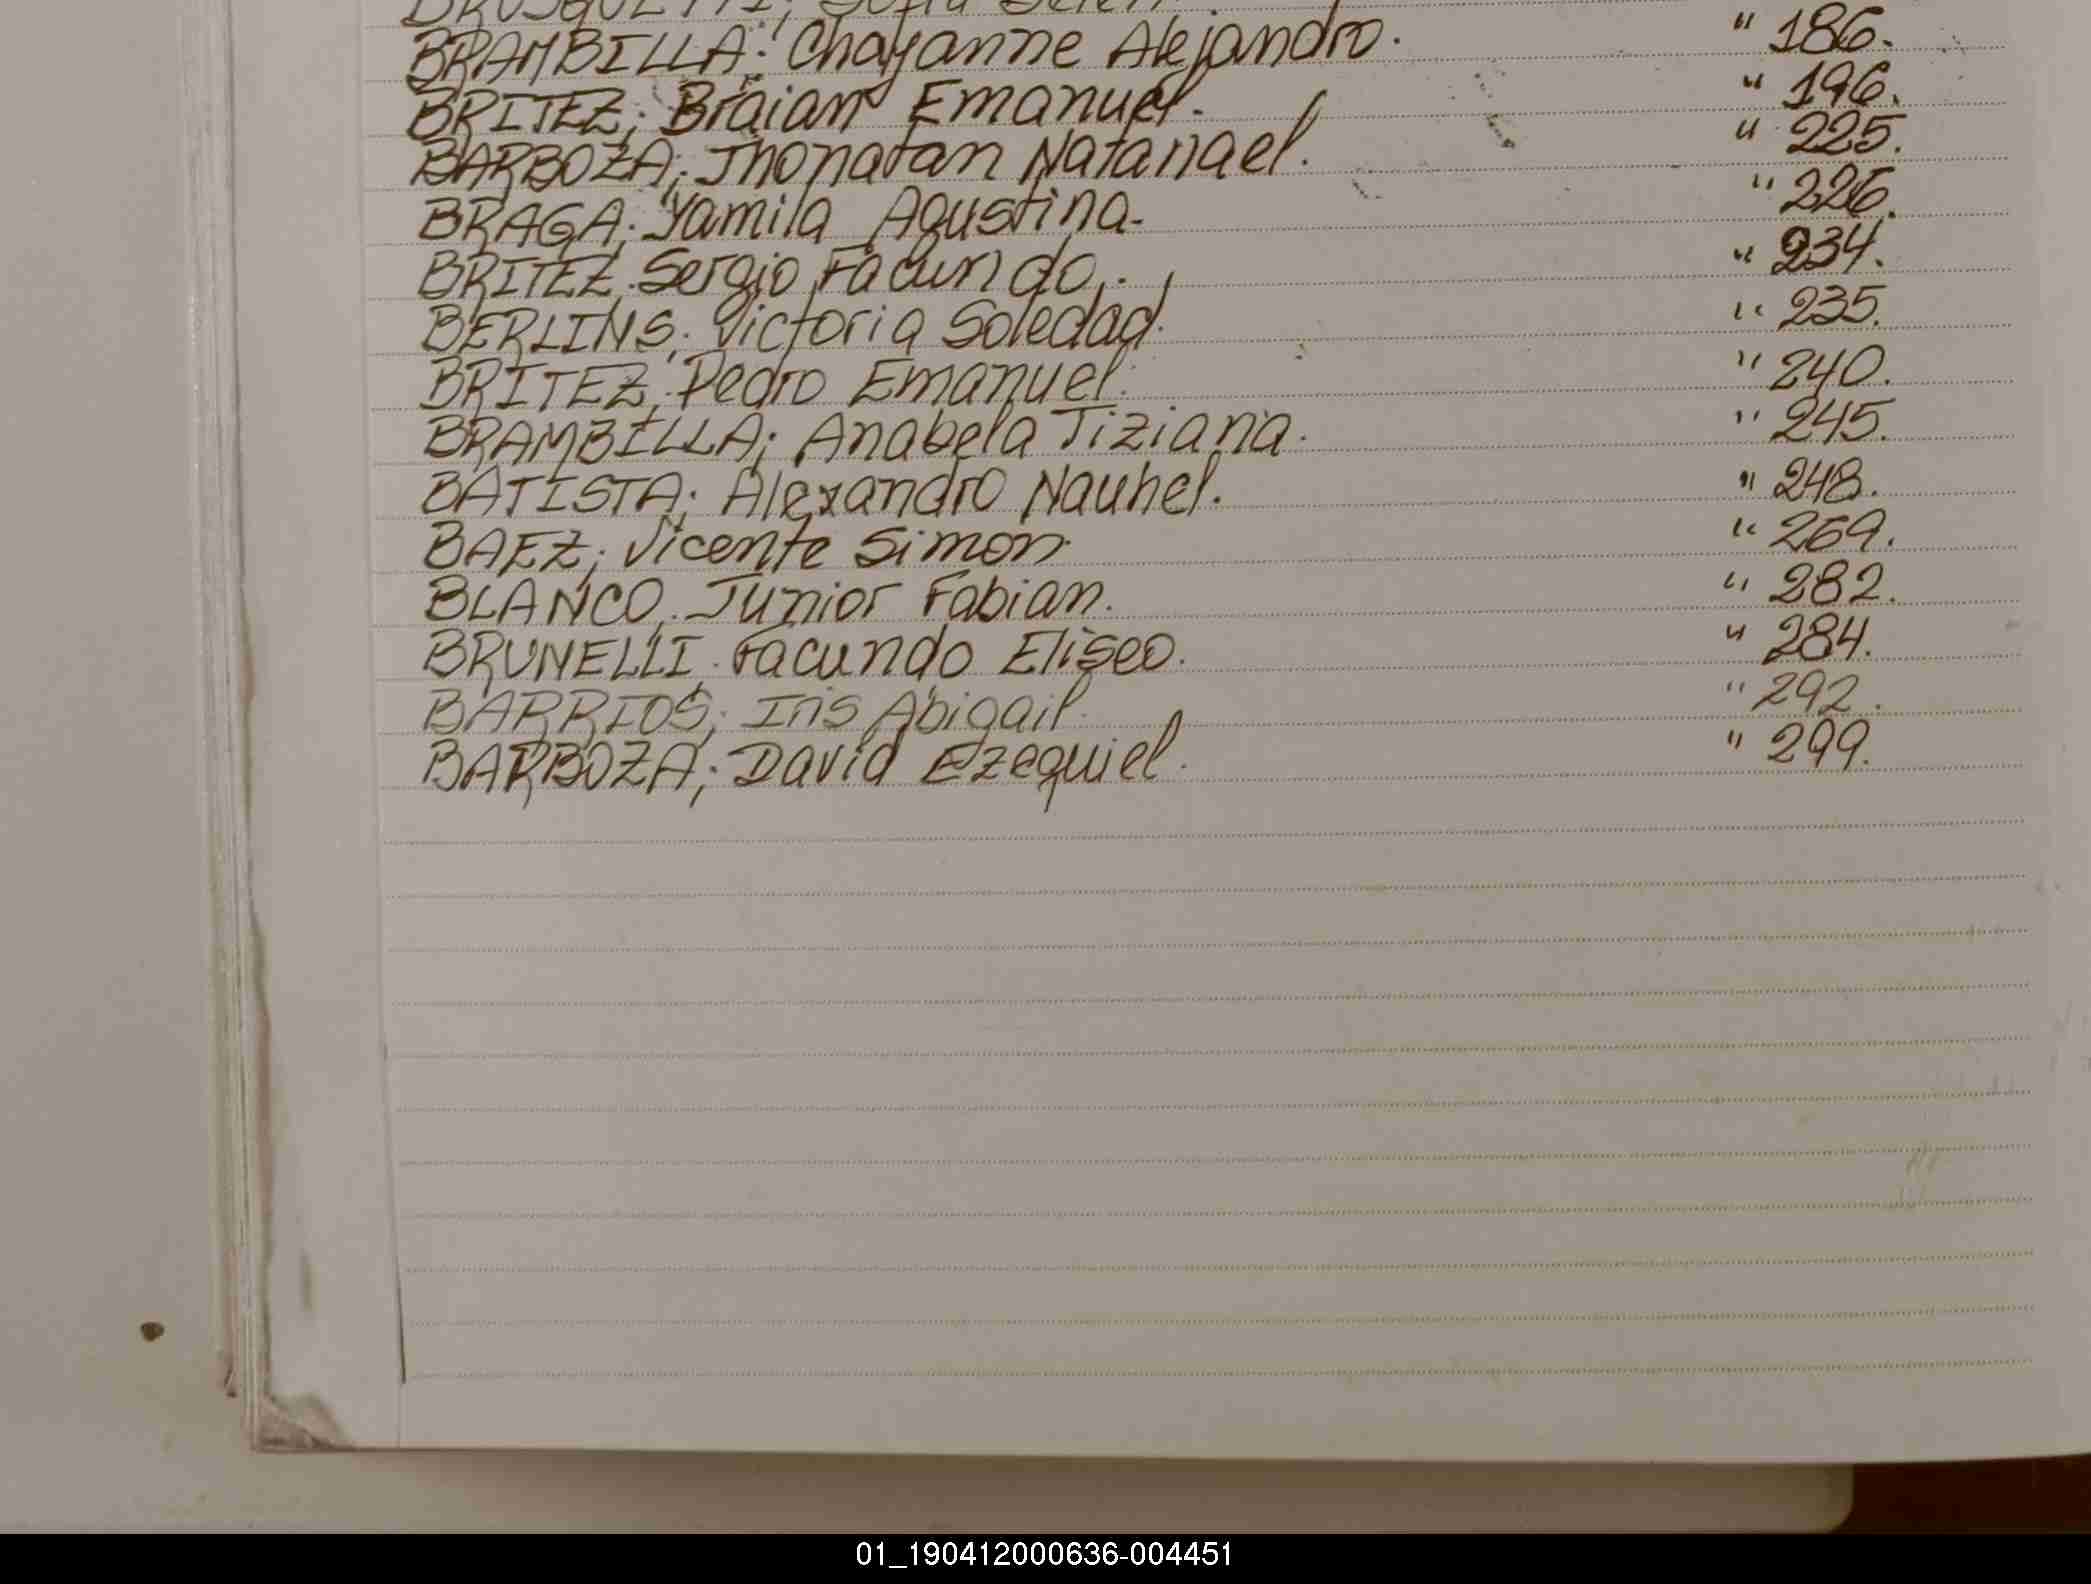 BRUSQUETTI; Sofia Belen.
BRAMBILLA; Chayanne Alejandro. " 186.
BRITEZ; Braian Emanuel. " 196.
BARBOZA; Jhonatan Natanael. " 225.
BRAGA; Yamila Agustina. " 226.
BRITEZ; Sergio Facundo. " 234.
BERLINS; Victoria Soledad. " 235.
BRITEZ; Pedro Emanuel. " 240.
BRAMBILLA; Anabela Tiziana. " 245.
BATISTA; Alexandro Nauhel. " 248.
BAEZ; Vicente Simon. " 269.
BLANCO; Junior Fabian. " 282.
BRUNELLI; Facundo Eliseo. " 284.
BARRIOS; Iris Abigail. " 292.
BARBOZA; David Ezequiel. " 299.
01_190412000636-004451